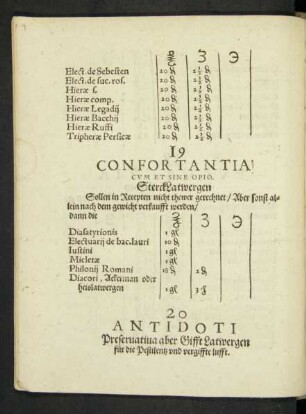 ℥ ʒ ℈
Elect. de Sebesten 20 ₰ 2½ ₰
Elect. de suc. ros. 20 ₰ 2½ ₰
Hieræ s. 20 ₰ 2½ ₰
Hieræ comp. 20 ₰ 2½ ₰
Hieræ Legadij 20 ₰ 2½ ₰
Hieræ Bacchij 20 ₰ 2½ ₰
Hieræ Ruffi 20 ₰ 2½ ₰
Tripheræ Persicæ 20 ₰ 2½ ₰
19
CONFORTANTIA
CVM ET SINE OPIO.
Sterck Latwergen
Sollen in Recepten nicht thewer gerechnet / Aber sonst al-
lein nach dem gewicht verkaufft werden /
dann die ℥ ʒ ℈
Diasatyrionis 1 gl
Electuarij de bac. lauri 10 ₰
Iustini 1 gl
Micletæ 1 gl
Philonij Romani 18 ₰ 2 ₰
Diacori, Ackerman oder
heislatwergen 1 gl
20
ANTIDOTI
Preservativa aber Gifft Latwergen
für die Pestilentz vnd vergiffte lufft.